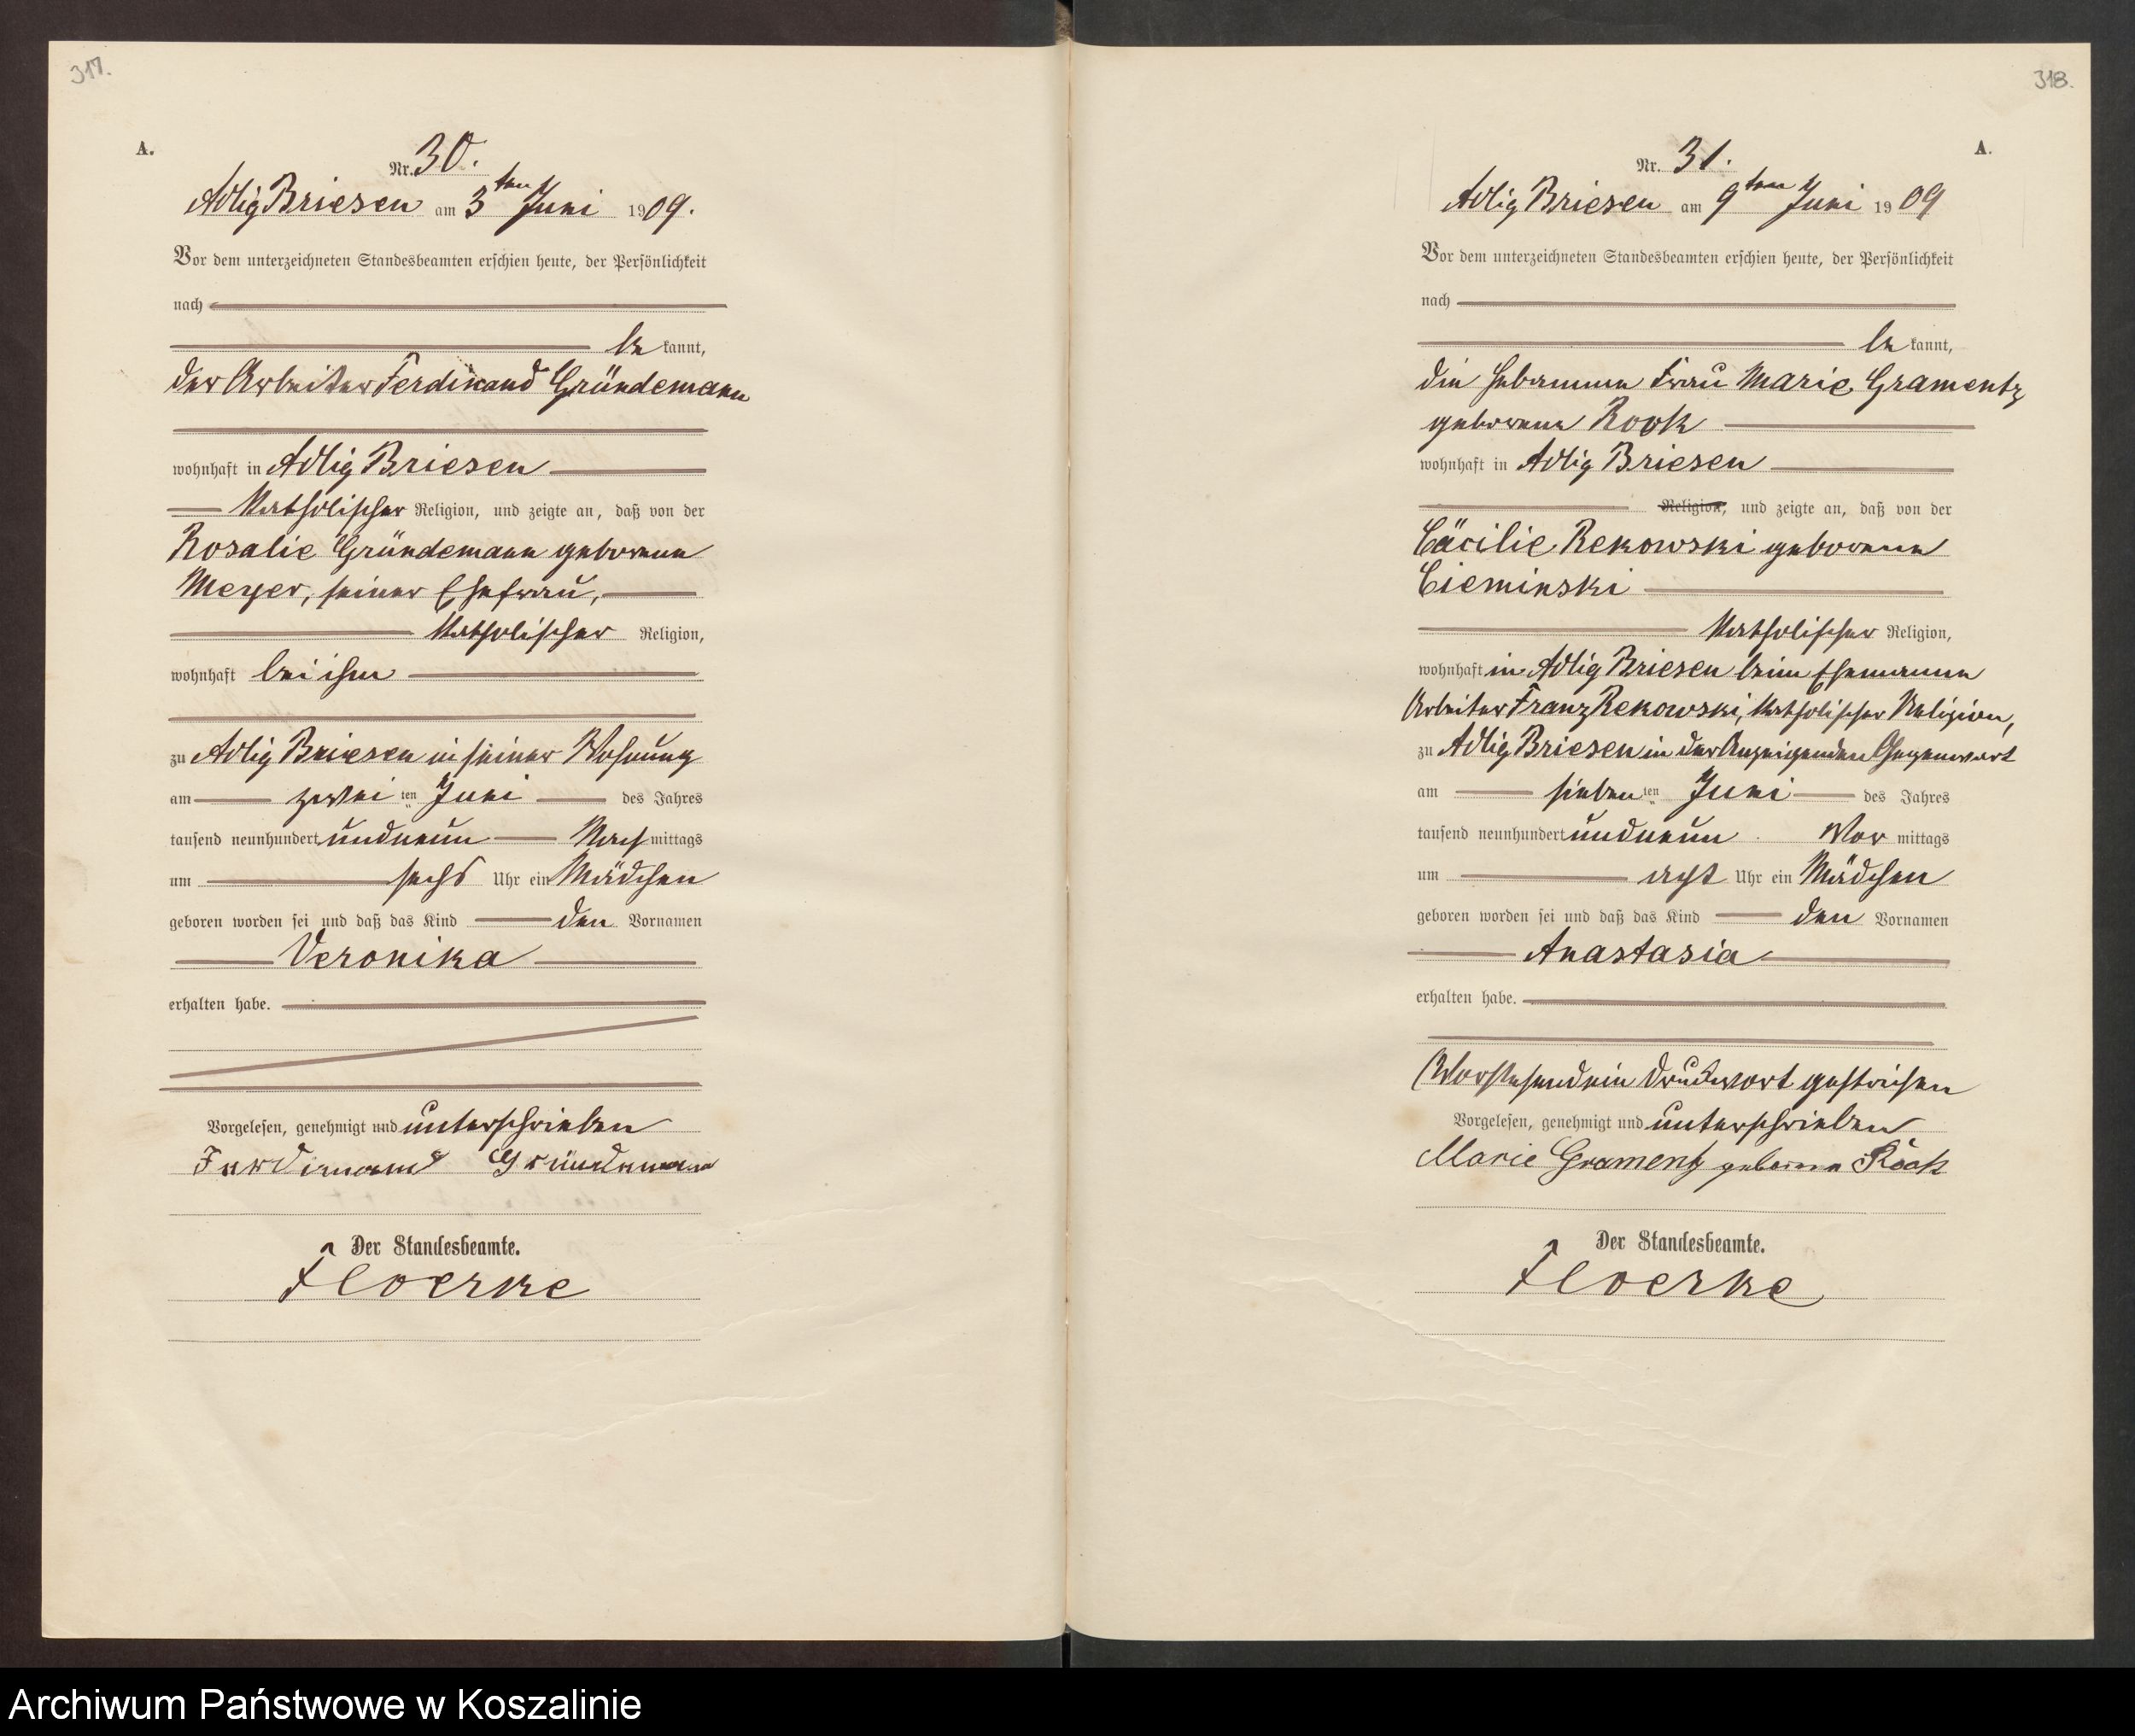 317.
A.
Nr. 30.
Adlig Briesen am 3ten Juni 1909.
Vor dem unterzeichneten Standesbeamten erschien heute, der Persönlichkeit
nach
be kannt,
der Arbeiter Ferdinand Gründemann
wohnhaft in Adlig Briesen
katholischer Religion, und zeigte an, daß von der
Rosalie Gründemann geborene
Meyer, seiner Ehefrau,
katholischer Religion,
wohnhaft bei ihm
zu Adlig Briesen in seiner Wohnung
am zweiten Juni des Jahres
tausend neunhundert undneun Nachmittags
um sechs Uhr ein Mädchen
geboren worden sei und daß das Kind den Vornamen
Veronika
erhalten habe.
Vorgelesen, genehmigt und unterschrieben
Ferdinand Gründemann
Der Standesbeamte.
Floerke
318.
A.
Nr. 31.
Adlig Briesen am 9ten Juni 1909
Vor dem unterzeichneten Standesbeamten erschien heute, der Persönlichkeit
nach
be kannt,
die Hebamme Frau Marie Gramentz
geborene Rook
wohnhaft in Adlig Briesen
Religion, und zeigte an, daß von der
Cäcilie Rekowski geborene
Cieminski
katholischer Religion,
wohnhaft in Adlig Briesen beim Ehemanne
Arbeiter Franz Rekowski, katholischer Religion,
zu Adlig Briesen in der Anzeigenden Gegenwart
am siebenten Juni des Jahres
tausend neunhundert undneun Vor mittags
um acht Uhr ein Mädchen
geboren worden sei und daß das Kind den Vornamen
Anastasia
erhalten habe.
Vorstehend ein Druckwort gestrichen
Vorgelesen, genehmigt und unterschrieben
Marie Gramentz geborene Rook
Der Standesbeamte.
Floerke
Archiwum Państwowe w Koszalinie